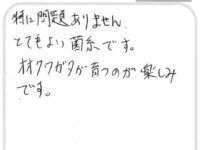 特に問題ありません.
とてもよい菌糸です。
オオクワガタが育つのが楽しみ
です。